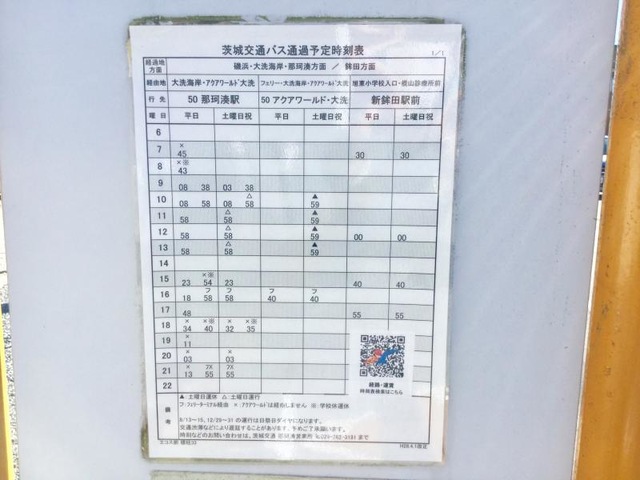 茨城交通バス通過予定時刻表 1/1
経過地方面 磯浜・大洗海岸・那珂湊方面 / 鉾田方面
経由地 大洗海岸・アクアワールド大洗 フェリー・大洗海岸・アクアワールド大洗 旭東小学校入口・樅山診療所前
行先 50 那珂湊駅 50 アクアワールド・大洗 新鉾田駅前
曜日 平日 土曜日祝 平日 土曜日祝 平日 土曜日祝
6
7 ×45 30 30
8 ×※43
9 08 38 03 38
10 08 58 08 △58 ▲59
11 58 △58 ▲59
12 58 △58 ▲59 00 00
13 58 △58 ▲59
14
15 23 ×※54 23 40 40
16 ×18 フ58 フ58 フ40 フ40
17 48 55 55
18 ×34 ×※40 ×32 ×※35
19 ×11
20 ×03 ×03
21 ×13 フ×55 フ×55
22
経路・運賃
時刻表検索はこちら
備考
▲:土曜日運休 △:土曜日運行
フ:フェリーターミナル経由 ×:アクアワールドは経由しません ※:学校休運休
8/13~15、12/29~31 の運行は日祭日ダイヤになります。
交通渋滞などにより遅延することがあります。予めご了承願います。
時刻などのお問い合わせは、茨城交通 那珂湊営業所 まで